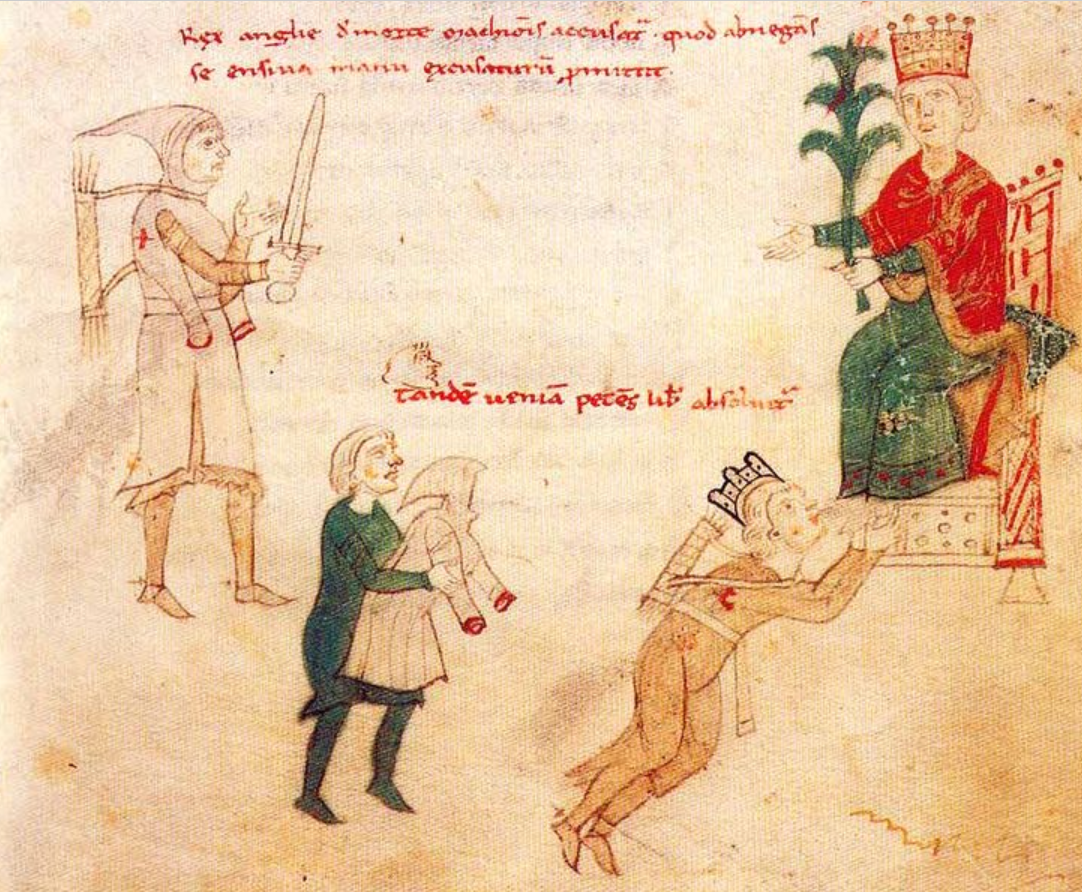 Rex anglie d̉ morte marchiōis accusať . quod abnegās
se ensiva manu excusaturū ꝓmittit.
tandē ueniā petēs lib̉ absoluiť